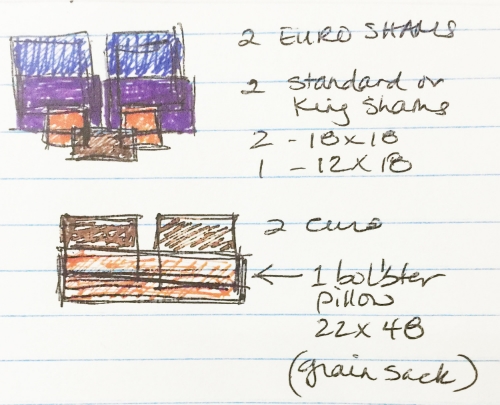 2 EURO SHAMS
2 Standard or
King Shams
2 - 18x18
1 - 12x18
2 euro
← 1 bolster
pillow
22x48
(grain sack)